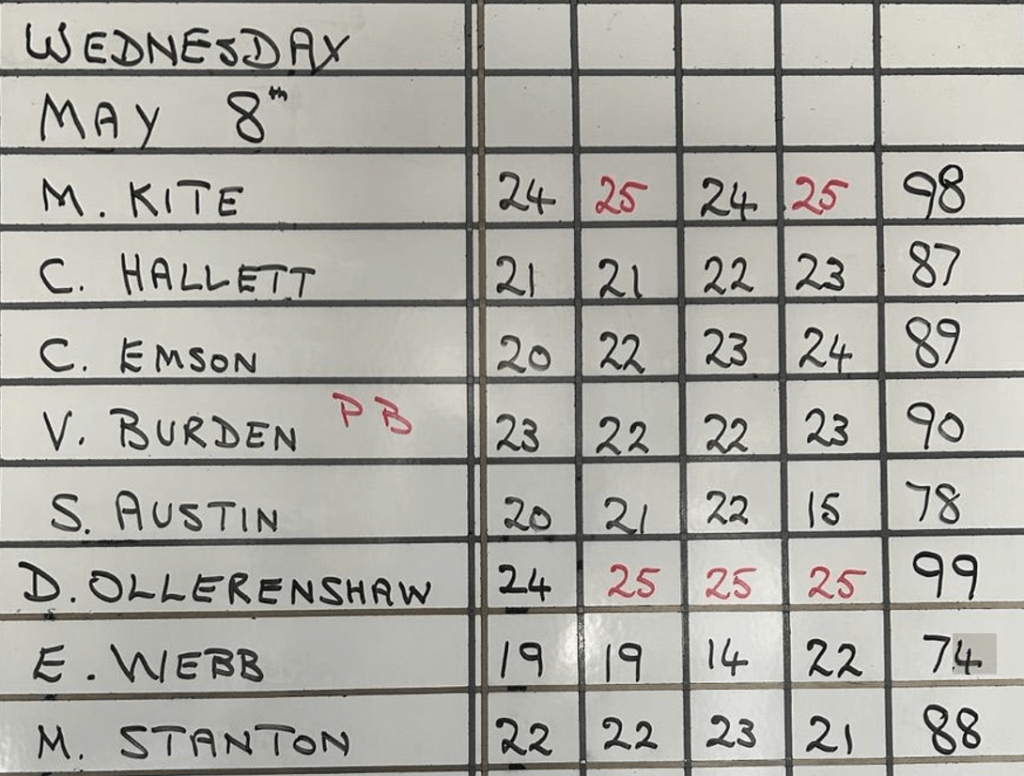 WEDNESDAY
MAY 8th
M. KITE 24 25 24 25 98
C. HALLETT 21 21 22 23 87
C. EMSON 20 22 23 24 89
V. BURDEN PB 23 22 22 23 90
S. AUSTIN 20 21 22 15 78
D. OLLERENSHAW 24 25 25 25 99
E. WEBB 19 19 14 22 74
M. STANTON 22 22 23 21 88